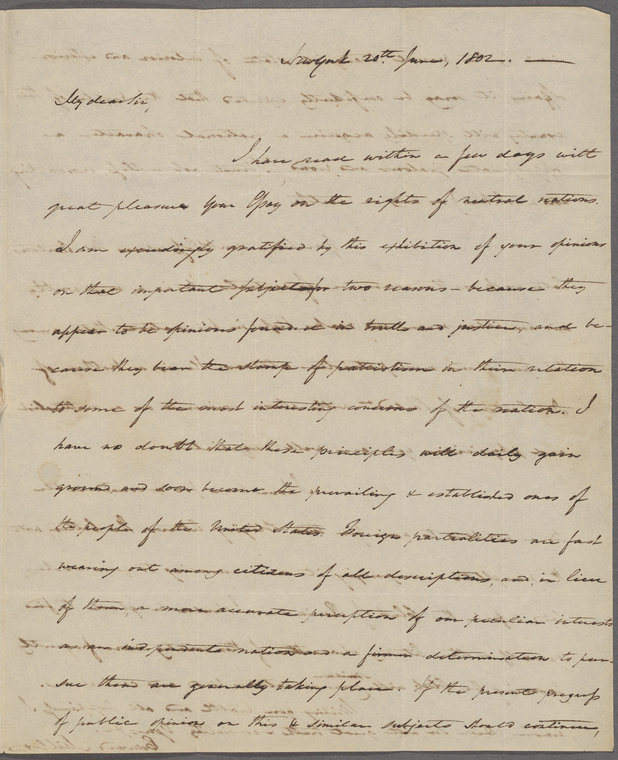 NewYork 20th June, 1802. —
My dear Sir,
I have read within a few days with
great pleasure your Essay on the rights of neutral nations.
I am exceedingly gratified by this exhibition of your opinions
on that important subject for two reasons – because they
appear to be opinions founded in truth and justice, and be-
cause they bear the stamp of patriotism in their relation
to some of the most interesting concerns of the nation. I
have no doubt that these principles will daily gain
ground and soon become the prevailing & established ones of
the people of the United States. Foreign partialities are fast
wearing out among citizens of all descriptions, and, in lieu
of them, a more accurate perception of our peculiar interests
as an independent nation and a firmer determination to pur-
sue them are generally taking place. If the present progress
of public opinion on this & similar subjects should continue,